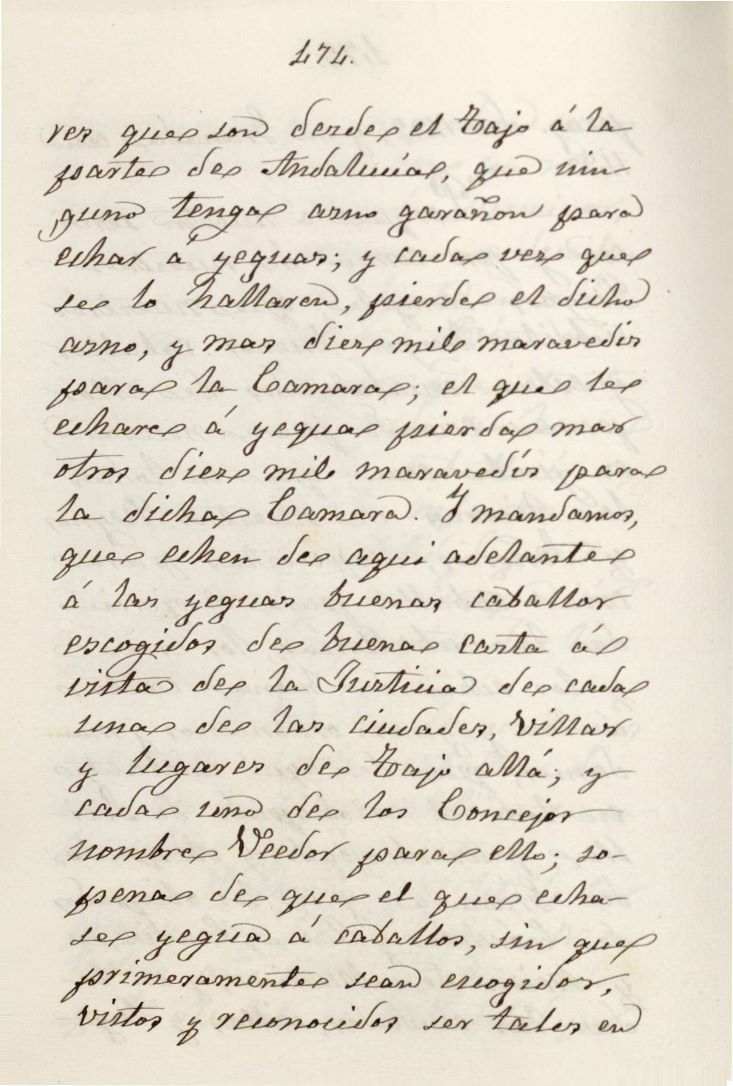 474.
res que son desde el Tajo á la
parte de Andalucía, que nin
guno tenga asno garañon para
echar á yeguas; y cada vez que
se lo hallaren, pierde el dicho
asno, y mas diez mil maravedis
para la Camara; el que le
echare á yegua pierda mas
otros diez mil maravedís para
la dicha Camara. Y mandamos,
que echen de aqui adelante
á las yeguas buenas caballos
escogidos de buena casta á
vista de la Justicia de cada
una de las ciudades, villas
y lugares de Tajo allá; y
cada uno de los Concejos
nombre Veedor para ello; so-
pena de que el que echa-
se yegua á caballos, sin que
primeramente sean escogidos,
vistos y reconocidos ser tales en